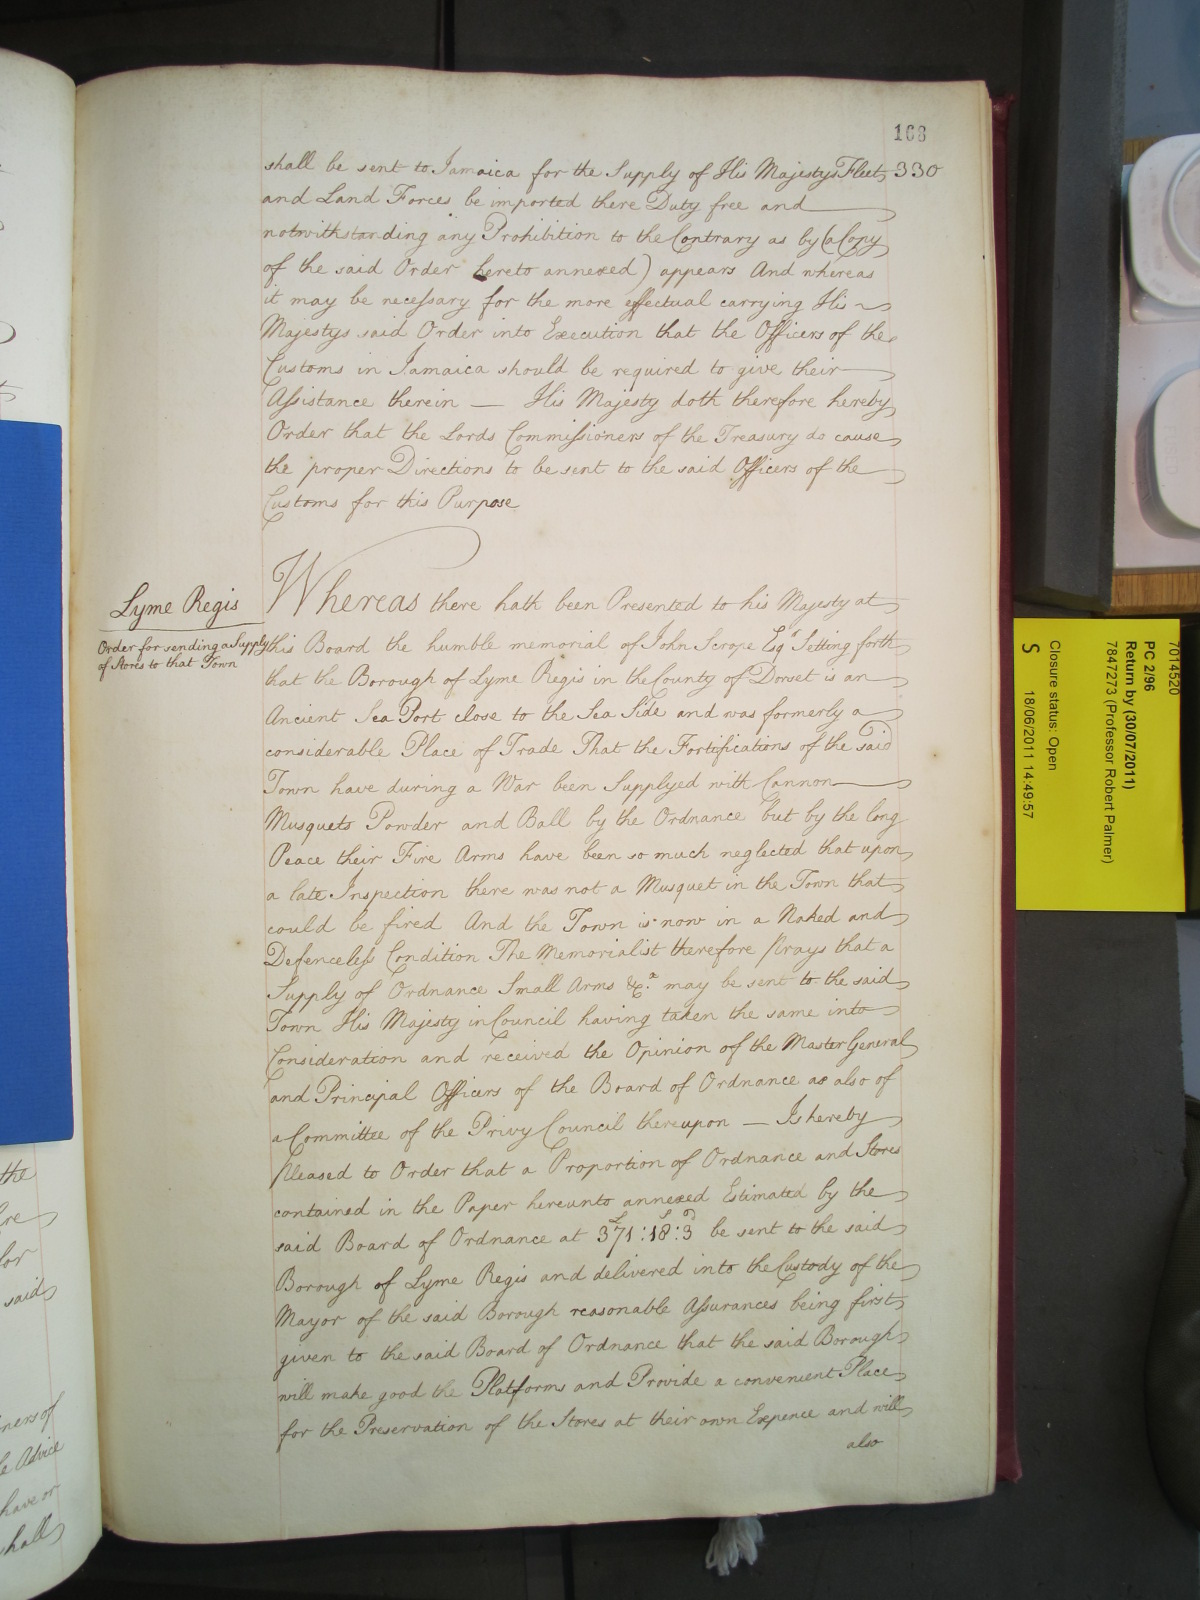 168
330
shall be sent to Jamaica for the Supply of His Majestys Fleet
and Land Forces be imported there Duty free and
notwithstanding any Prohibition to the Contrary as by (a Copy
of the said Order hereto annexed) appears And whereas
it may be necessary for the more effectual carrying His
Majestys said Order into Execution that the Officers of the
Customs in Jamaica should be required to give their
Assistance therein — His Majesty doth therefore hereby
Order that the Lords Commissioners of the Treasury do cause
the proper Directions to be sent to the said Officers of the
Customs for this Purpose
Lyme Regis
Order for sending a Supply
of Stores to that Town
Whereas there hath been Presented to his Majesty at
this Board the humble memorial of John Scrope Esqr Setting forth
that the Borough of Lyme Regis in the County of Dorset is an
Ancient Sea Port close to the Sea Side and was formerly a
considerable Place of Trade That the Fortifications of the said
Town have during a War been Supplyed with Cannon
Musquets Powder and Ball by the Ordnance but by the long
Peace their Fire Arms have been so much neglected that upon
a late Inspection there was not a Musquet in the Town that
could be fired And the Town is now in a Naked and
Defenceless Condition The Memorialist therefore prays that a
Supply of Ordnance Small Arms &c.a may be sent to the said
Town His Majesty in Council having taken the same into
Consideration and received the Opinion of the Master General
and Principal Officers of the Board of Ordnance as also of
a Committee of the Privy Council thereupon — Is hereby
pleased to Order that a Proportion of Ordnance and Stores
contained in the Paper hereunto annexed Estimated by the
said Board of Ordnance at £371:18s:3d be sent to the said
Borough of Lyme Regis and delivered into the Custody of the
Mayor of the said Borough reasonable Assurances being first
given to the said Board of Ordnance that the said Borough
will make good the Platforms and Provide a convenient Place
for the Preservation of the Stores at their own Expence and will
also
the
said
ners of
Advice
have or
7014520
PC 2/96
Return by (30/07/2011)
7847273 (Professor Robert Palmer)
Closure status: Open
S 18/06/2011 14:49:57